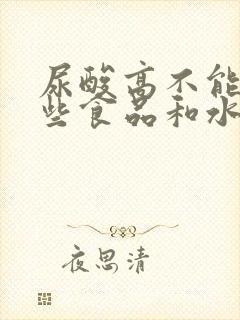 尿酸高不能
些食品和水
夜思清